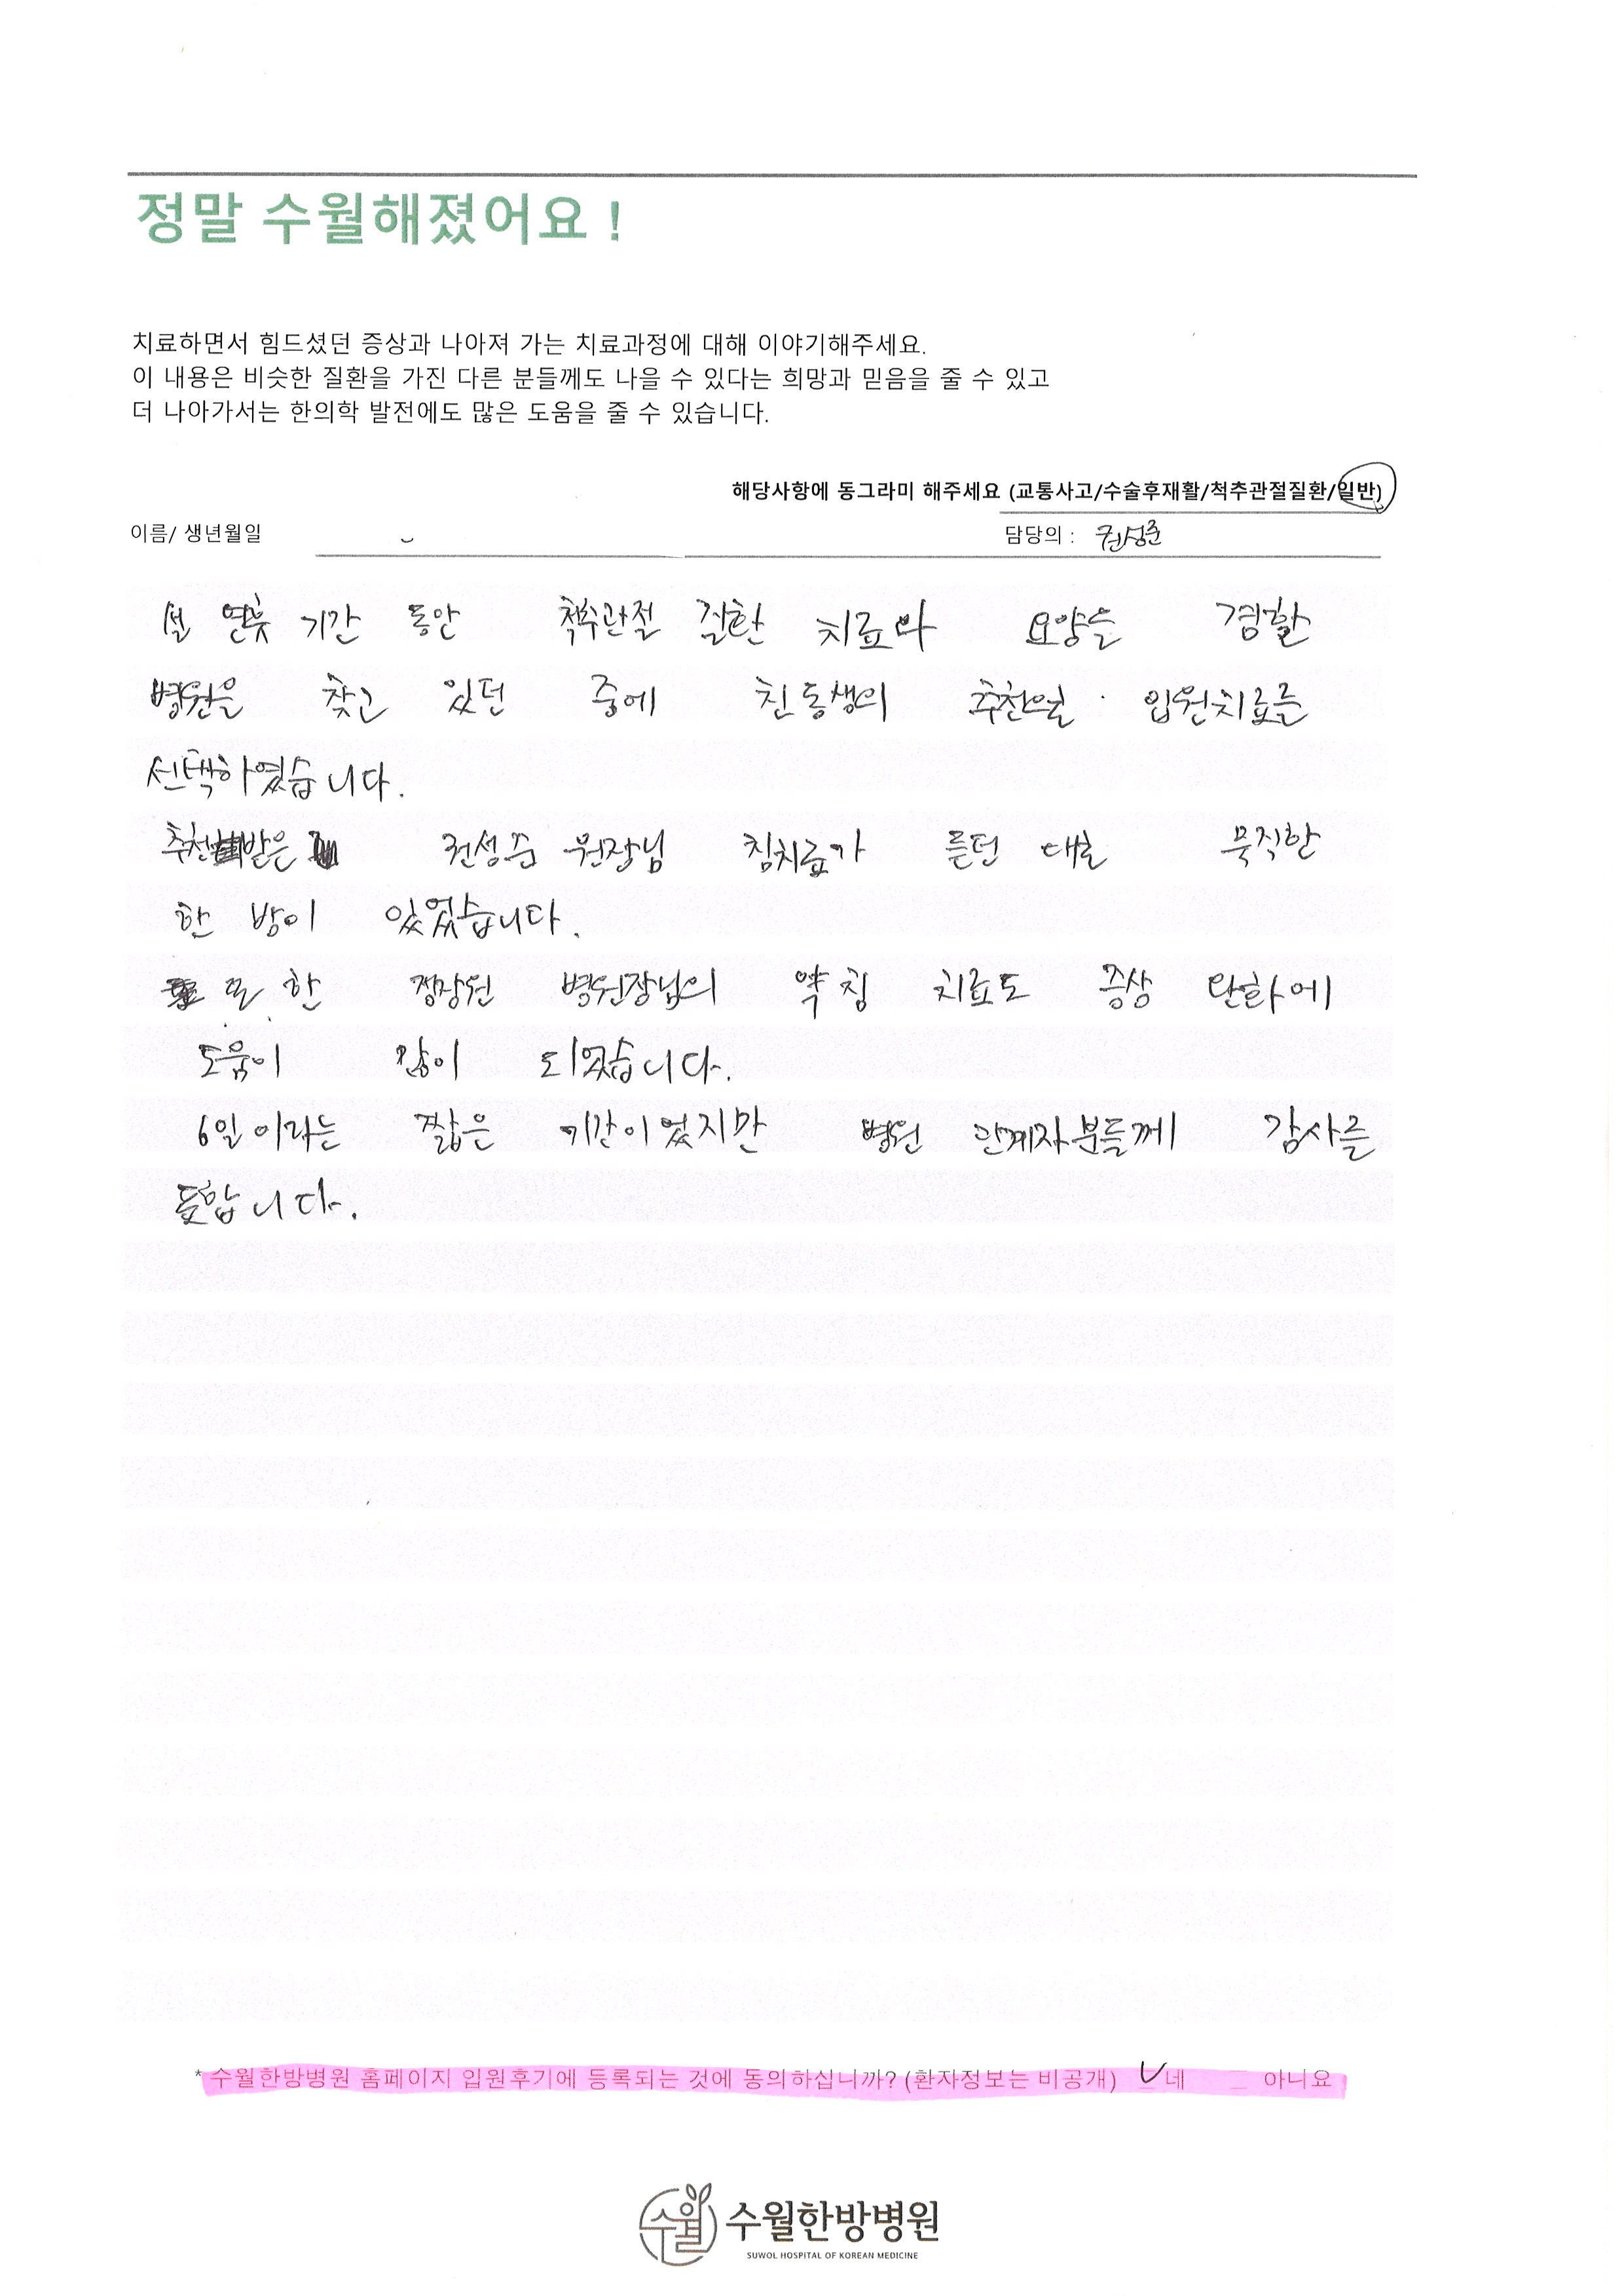 정말 수월해졌어요 !
치료하면서 힘드셨던 증상과 나아져 가는 치료과정에 대해 이야기해주세요.
이 내용은 비슷한 질환을 가진 다른 분들께도 나을 수 있다는 희망과 믿음을 줄 수 있고
더 나아가서는 한의학 발전에도 많은 도움을 줄 수 있습니다.
해당사항에 동그라미 해주세요 (교통사고/수술후재활/척추관절질환/일반)
이름/ 생년월일 담당의 : 권성준
설 연휴 기간 동안 척추관절 질환 치료와 요양을 겸할
병원을 찾고 있던 중에 친동생의 추천으로 입원치료를
선택하였습니다.
추천받은 권성준 원장님 침치료가 듣던 대로 묵직한
한 방이 있었습니다.
또한 정상원 병원장님의 약침 치료도 증상 완화에
도움이 많이 되었습니다.
6일이라는 짧은 기간이었지만 병원 관계자분들께 감사를
표합니다.
* 수월한방병원 홈페이지 입원후기에 등록되는 것에 동의하십니까? (환자정보는 비공개) 네 아니요
수월 수월한방병원
SUWOL HOSPITAL OF KOREAN MEDICINE